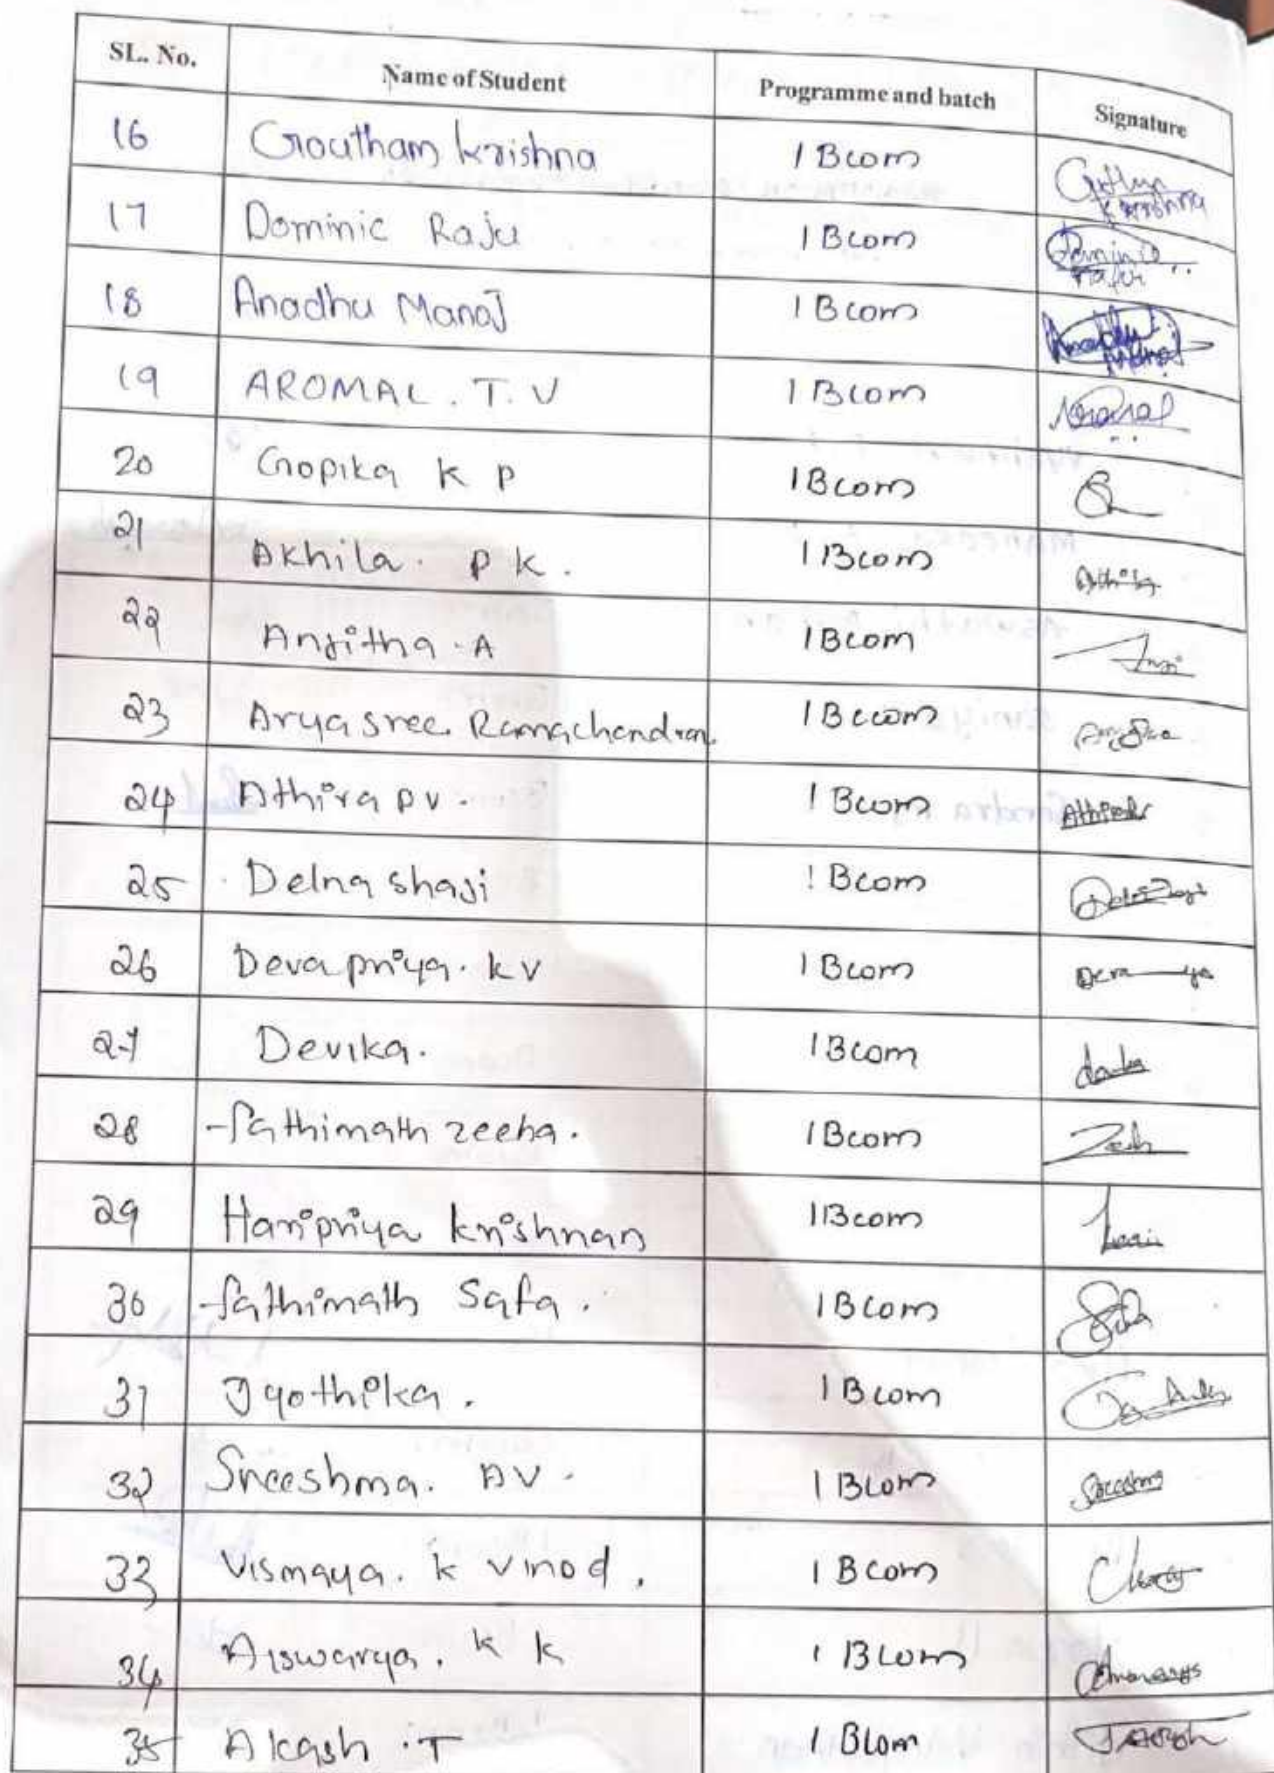 SL. No. Name of Student Programme and batch Signature
16 Goutham krishna 1 Bcom Krishna
17 Dominic Raju 1 Bcom Dominic Raju
18 Anadhu Manoj 1 Bcom Anadhu Manoj
19 AROMAL . T. V 1 Bcom Aromal
20 Gopika K P 1 Bcom
21 Akhila. P K. 1 Bcom
22 Anjitha . A 1 Bcom
23 Aryasree. Ramachandran. 1 Bcom
24 Athira PV. 1 Bcom
25 Delna shaji 1 Bcom
26 Devapriya. KV 1 Bcom
27 Devika. 1 Bcom
28 fathimath zeeba. 1 Bcom
29 Haripriya krishnan 1 Bcom
30 fathimath Safa. 1 Bcom
31 Jyothika. 1 Bcom
32 Sreeshma. AV. 1 Bcom Sreeshma
33 Vismaya. K Vinod. 1 Bcom
34 Aiswarya. K K 1 Bcom
35 Akash .T 1 Bcom